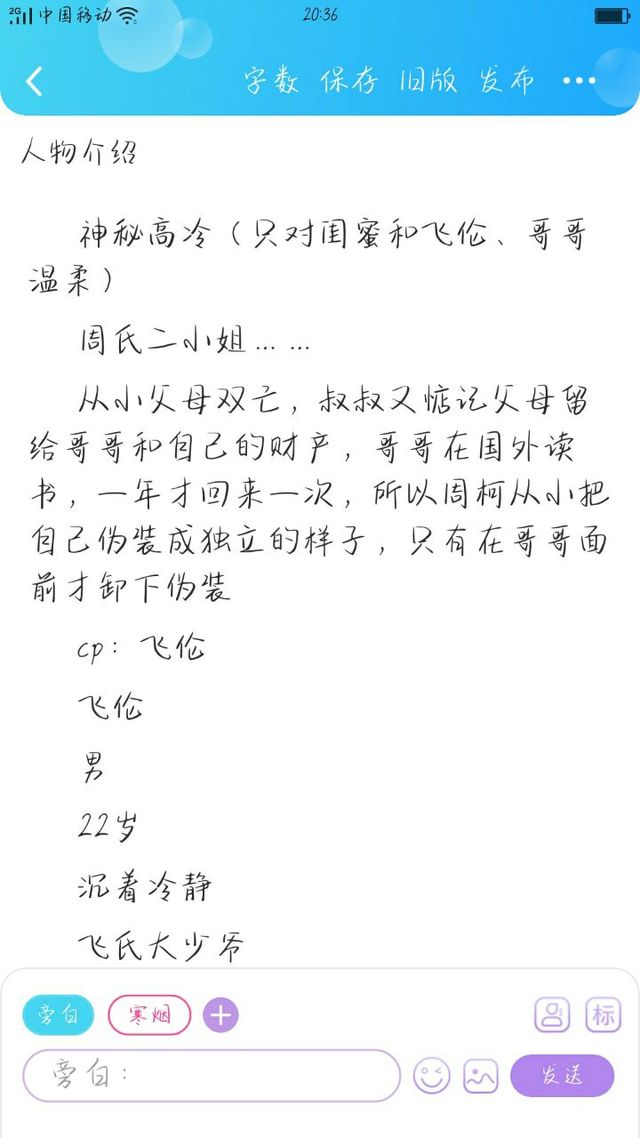 2G 中国移动 20:36
字数 保存 旧版 发布 •••
人物介绍
神秘高冷（只对闺蜜和飞伦、哥哥
温柔）
周氏二小姐……
从小父母双亡，叔叔又惦记父母留
给哥哥和自己的财产，哥哥在国外读
书，一年才回来一次，所以周柯从小把
自己伪装成独立的样子，只有在哥哥面
前才卸下伪装
cp：飞伦
飞伦
男
22岁
沉着冷静
飞氏大少爷
旁白 寒烟 +
标
旁白：
发送